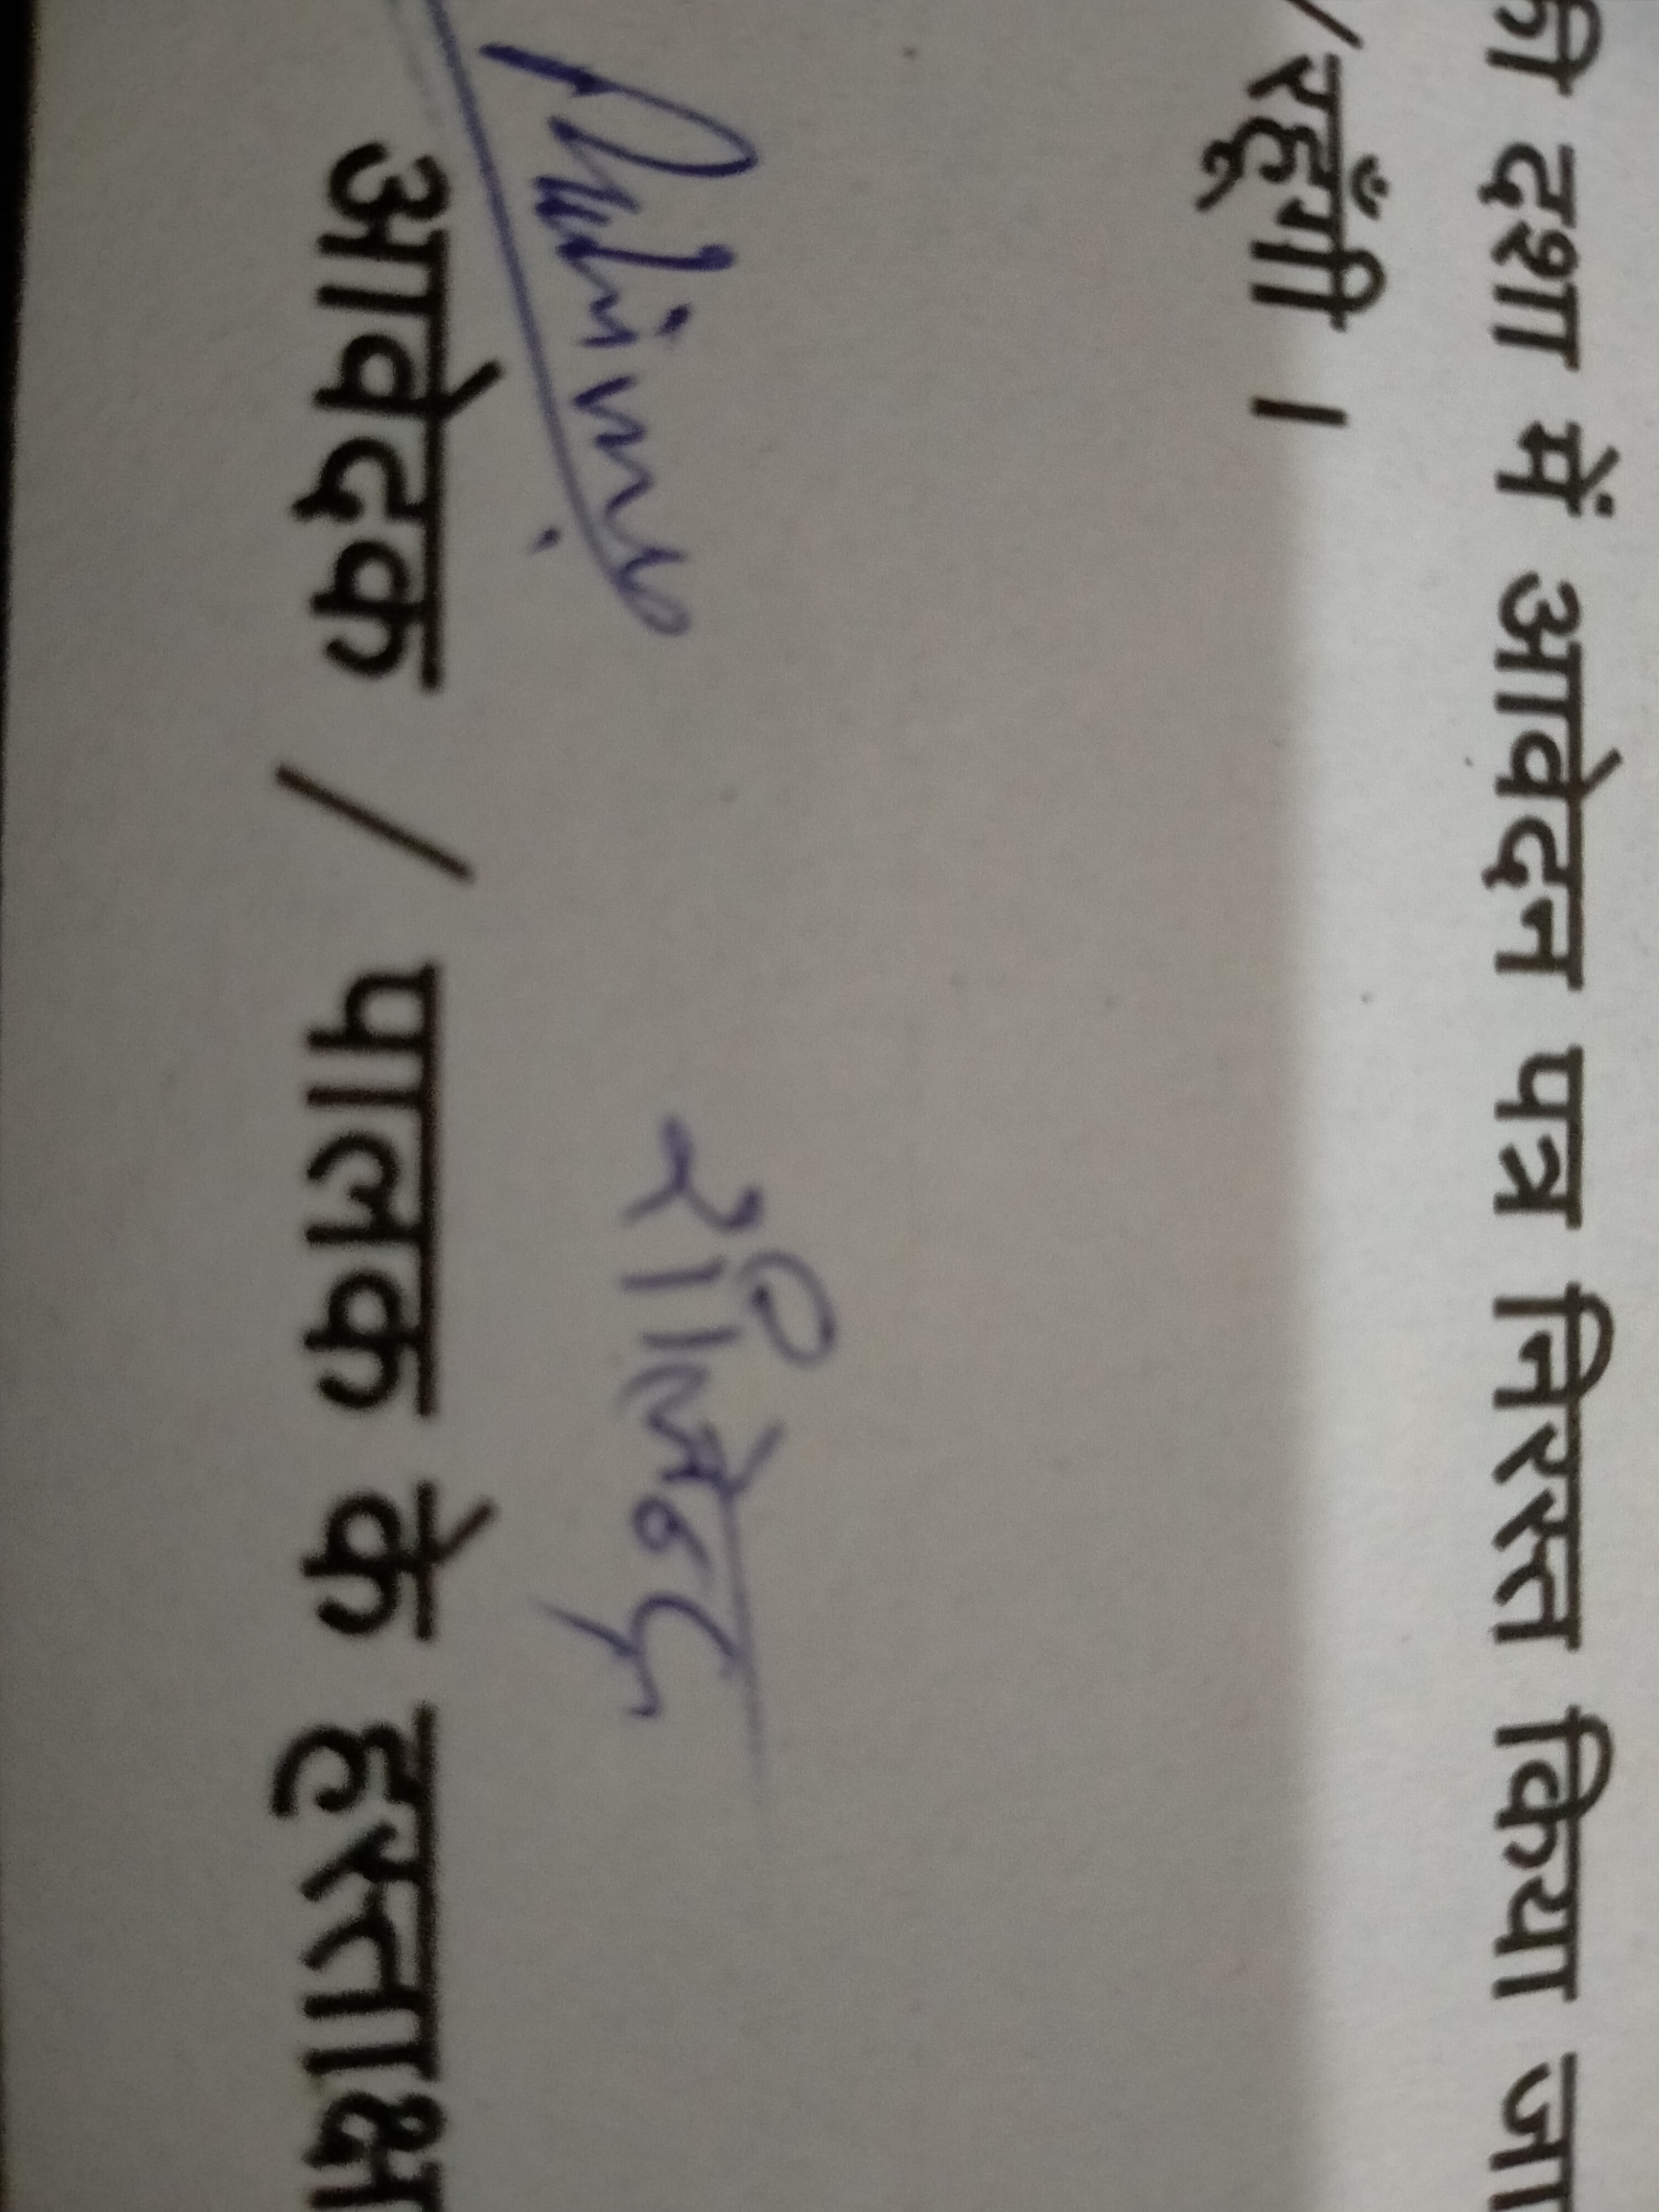 की दशा में आवेदन पत्र निरस्त किया जा
/ रहूँगी ।
आवेदक / पालक के हस्ताक्ष